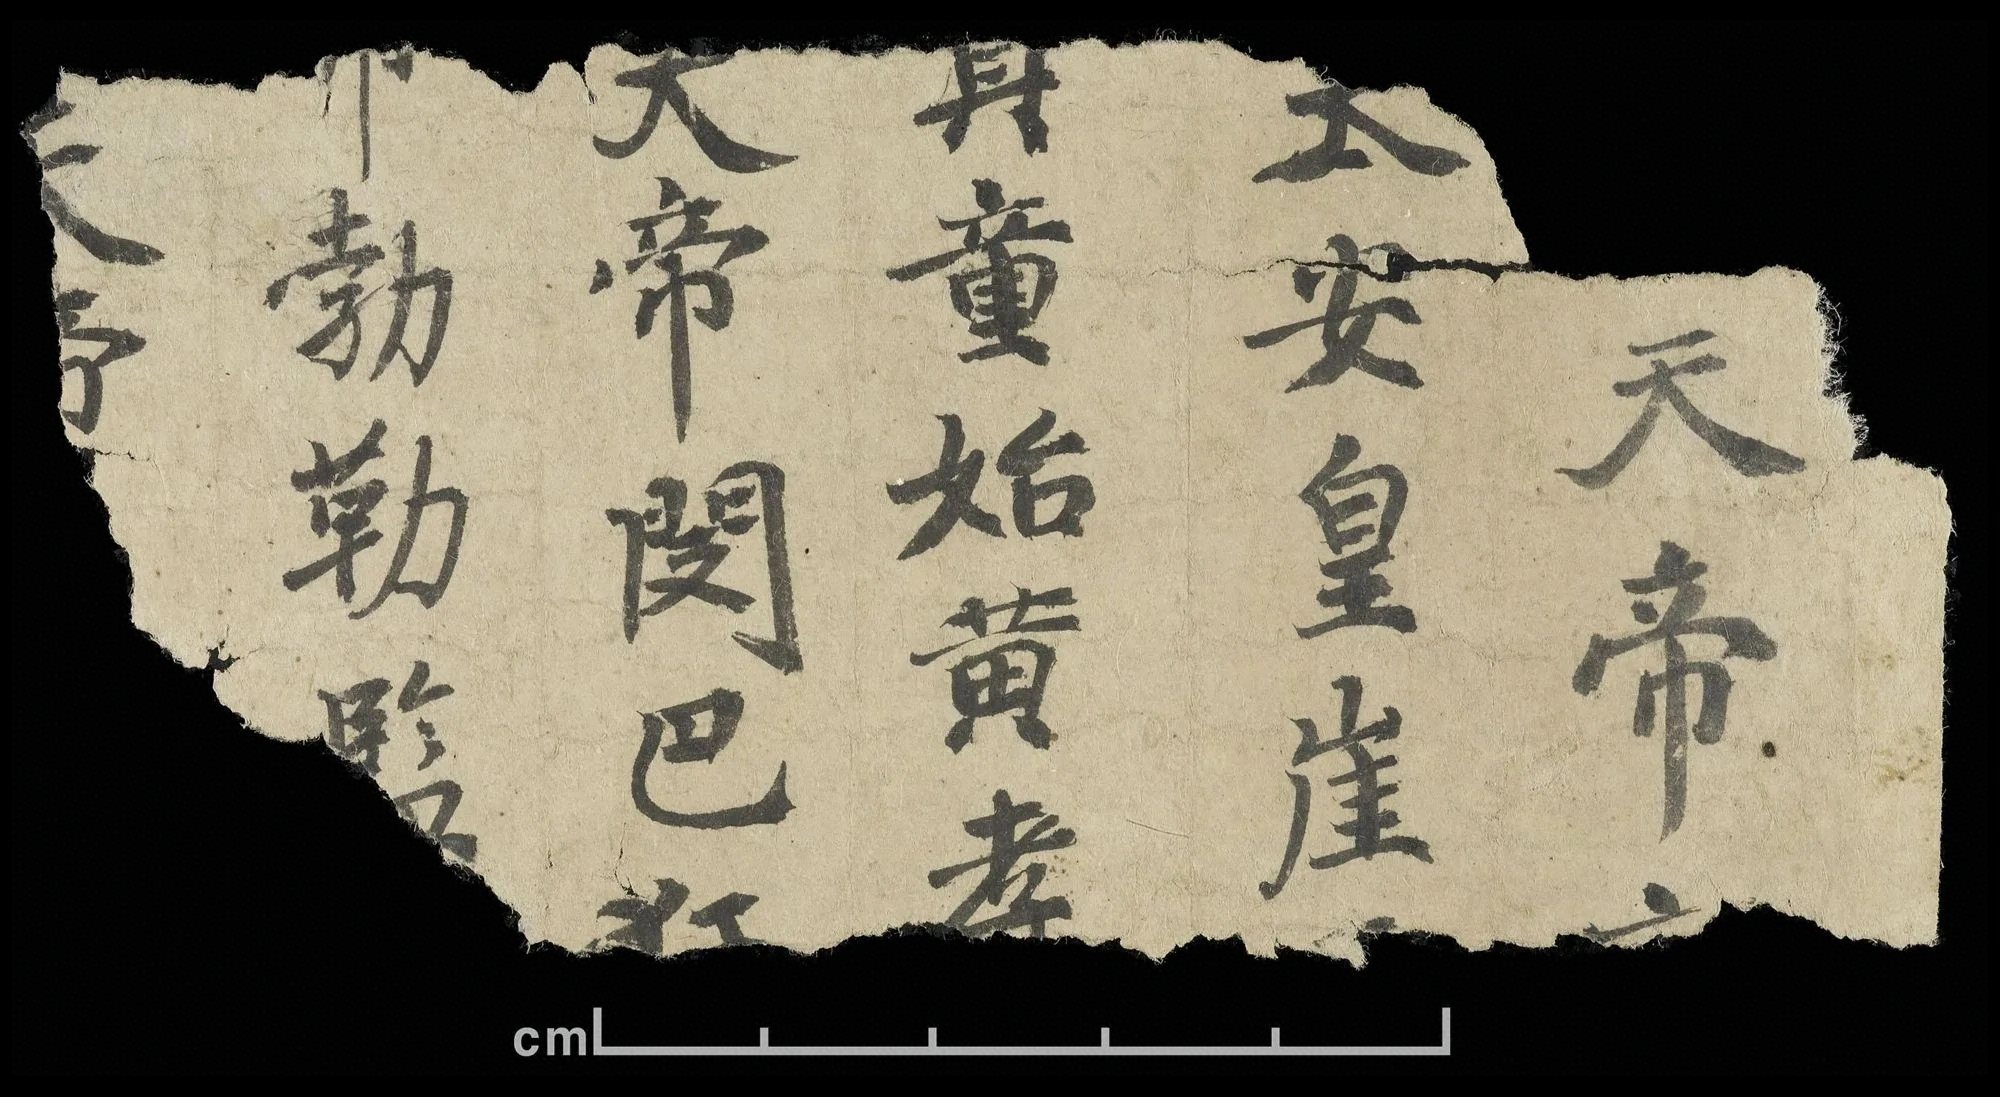 天帝
太安皇崖
真童始黄孝
天帝閔巴狂
帝勃勒監
天